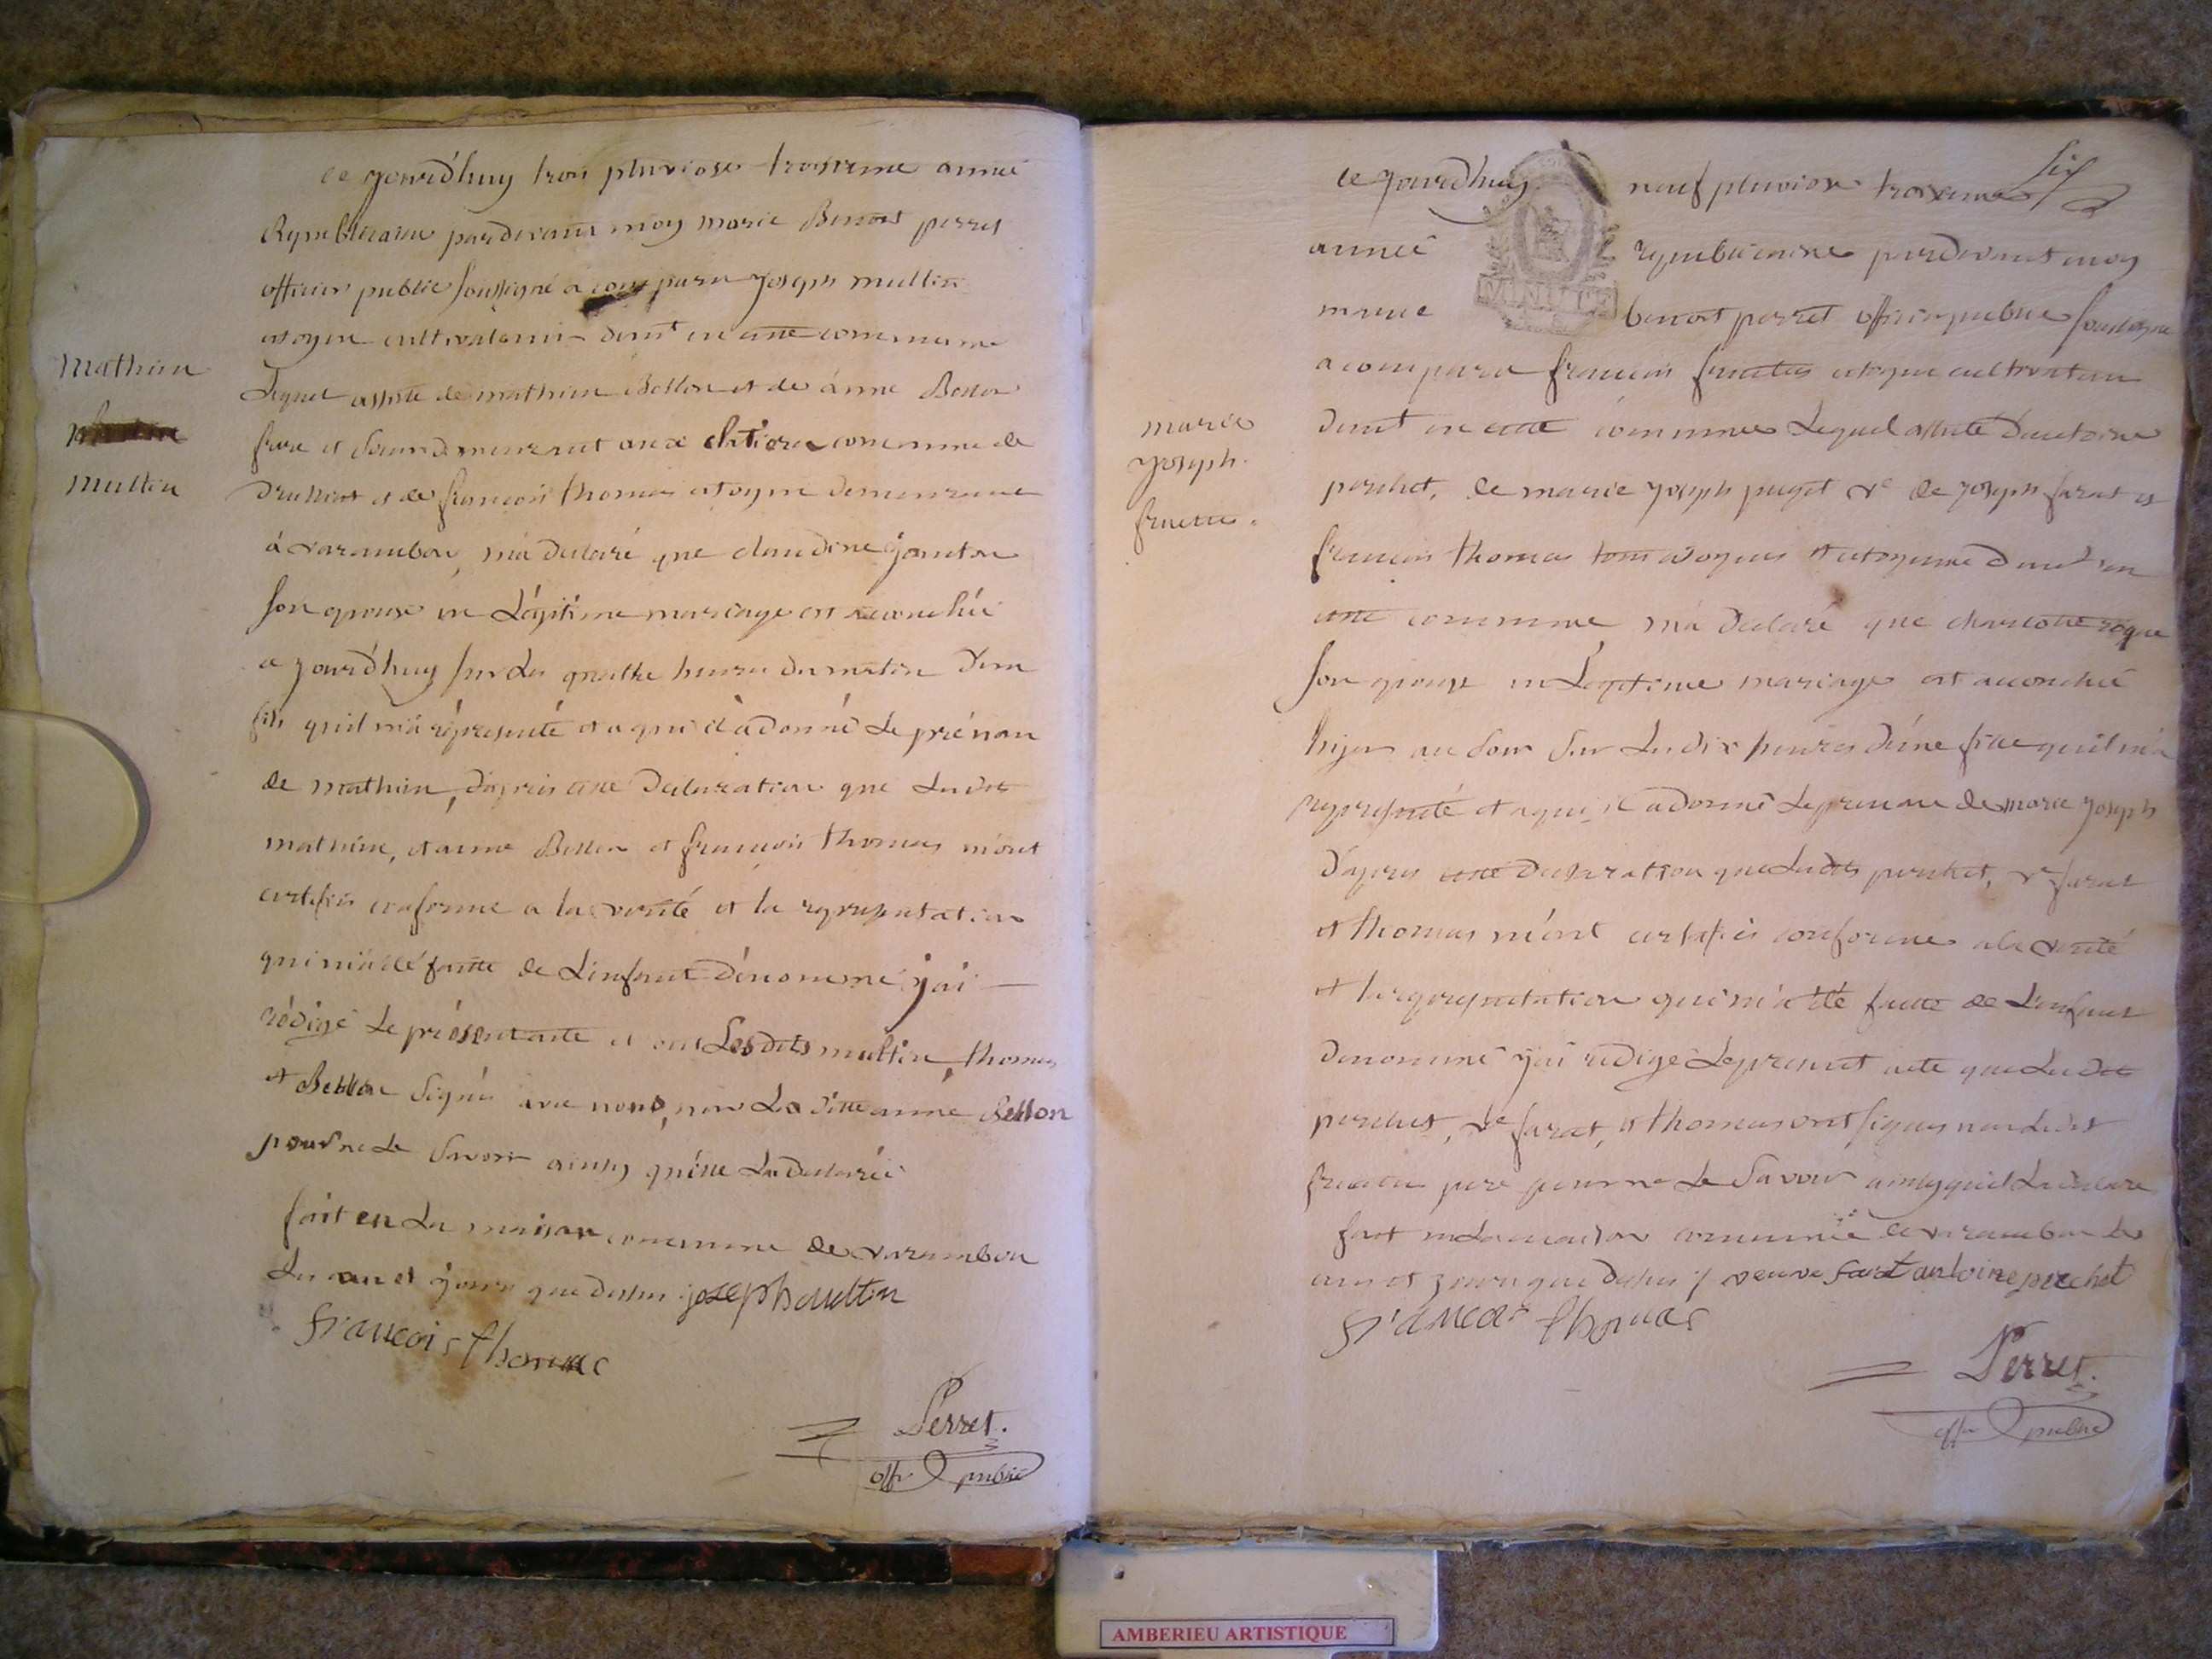 ce jourd'huy trois pluviose troisieme année
Republicaine pardevant moy marie Benoit perret
officier public soussigné a comparu joseph multin
citoyen cultivateur demt en cette commune
Lequel assisté de mathieu Bellon et de anne Bellon
frere et soeur demeurant aux commune de
druillat et de françois thomas citoyen demeurant
à varambon, m'a declaré que claudine
son epouse en Légitime mariage est accouchée
a jourd'huy sur les quatre heures du matin d'un
fils quil m'a représenté et a qui il à donné le prénom
de mathieu, d'apres cette declaration que lesdits
mathieu, et anne Bellon et françois thomas m'ont
certifiés conforme a la verité et la representation
qui m'a été faitte de L'enfant dénommé j'ai
rédigé le présent acte et ont Lesdits multin, thomas
et Bellon signés avec nous, non La ditte anne Bellon
pour ne le savoir ainsy qu'elle La declarée
fait en La maison commune de varambon
Les an et jours que dessus joseph multin
francois thomas
Perret.
offr public
Mathieu
Multin
ce jourd'huy neuf pluviose troisieme
année republicaine pardevant moy
marie benoit perret officier public soussigné
a comparu francois citoyen cultivateur
demt en cette commune Lequel assisté d'antoine
perchet, de marie joseph puget ve de joseph farat et
francois thomas tous citoyens et citoyenne demt en
cette commune m'a declaré que charlotte
son epouse en Légitime mariage est accouchée
hyer au soir sur Les dix heures d'une fille quil m'a
representé et a qui il a donné le prenom de marie joseph
d'apres cette declaration que Lesdits perchet, ve farat
et thomas m'ont certifiés conforme a la verité
et la representation qui m'a été faitte de L'enfant
denommé j'ai redigé le present acte que Lesdits
perchet, ve farat, et thomas ont signés non Ledit
pere pour ne Le savoir ainsy quil La declaré
fait en La maison commune de varambon les
an et jours que dessus veuve farat antoine perchet
francois thomas
Perret.
offr public
marie
joseph
MINUTE
AMBERIEU ARTISTIQUE